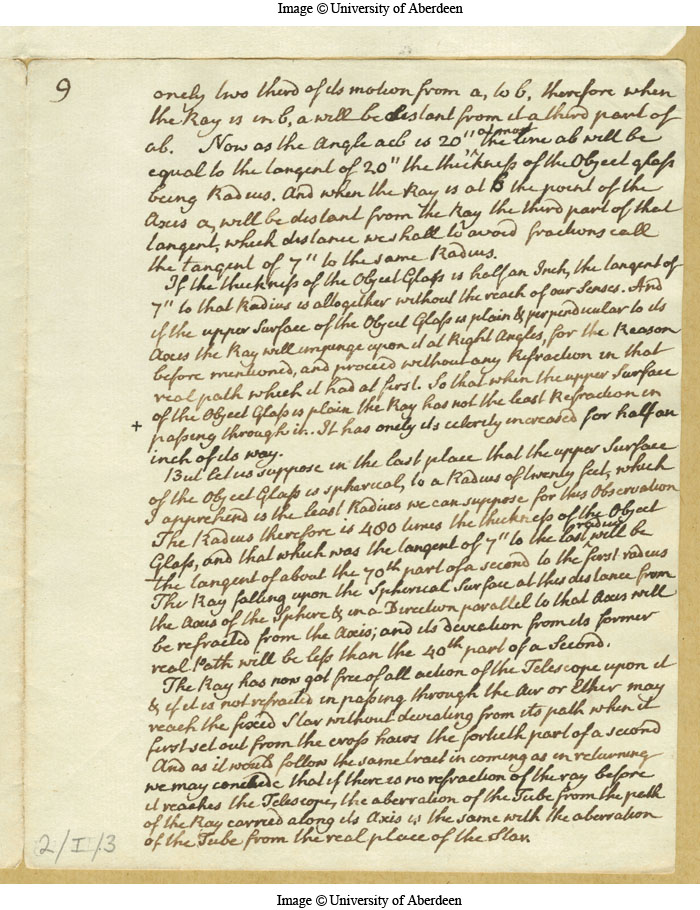 Image © University of Aberdeen
9
onely two third of its motion from a, to b, therefore when
the Ray is in b, a will be distant from it a third part of
ab. Now as the Angle acb is 20'' almost the line ab will be
equal to the tangent of 20'' the thickness of the Object glass
being Radius. And when the Ray is at B the point of the
Axis a, will be distant from the Ray the third part of that
tangent, which distance we shall to avoid fractions call
the tangent of 7'' to the same Radius.
If the thickness of the Object Glass is half an Inch, the tangent of
7'' to that Radius is altogether without the reach of our Senses. And
if the upper Surface of the Object Glass is plain & perpendicular to its
Axes the Ray will impunge upon it at Right Angles, for the Reason
before mentioned, and proceed without any Refraction in that
real path which it had at first. So that when the upper Surface
of the Object Glass is plain the Ray has not the least Refraction in
+ passing through it. It has onely its celerity increased for half an
inch of its way.
But let us suppose in the last place that the upper Surface
of the Object Glass is spherical, to a Radius of twenty feet, which
I apprehend is the least Radius we can suppose for this Observation
The Radius therefore is 480 times the thickness of the Object
Glass, and that which was the tangent of 7'' to the last radius will be
the tangent of about the 70th part of a second to the first radius
The Ray falling upon the Spherical Surface at this distance from
the Axis of the Sphere & in a Direction parallel to that Axis will
be refracted from the Axis; and its deviation from its former
real Path will be less than the 40th part of a Second.
The Ray has now got free of all action of the Telescope upon it
& if it is not refracted in passing through the Air or Ether may
reach the fixed Star without deviating from its path when it
first set out from the cross hairs the fortieth part of a second
And as it would follow the same tract in coming as in returning
we may conclude that if there is no refraction of the ray before
it reaches the Telescope, the aberration of the Tube from the path
of the Ray carried along its Axis is the same with the aberration
of the Tube from the real place of the Star.
2/I/3
Image © University of Aberdeen